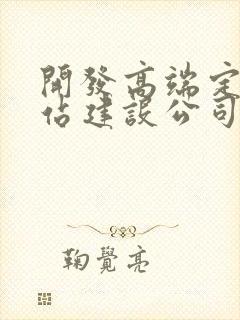 開發高端定
佔建設公司
鞠覺亮